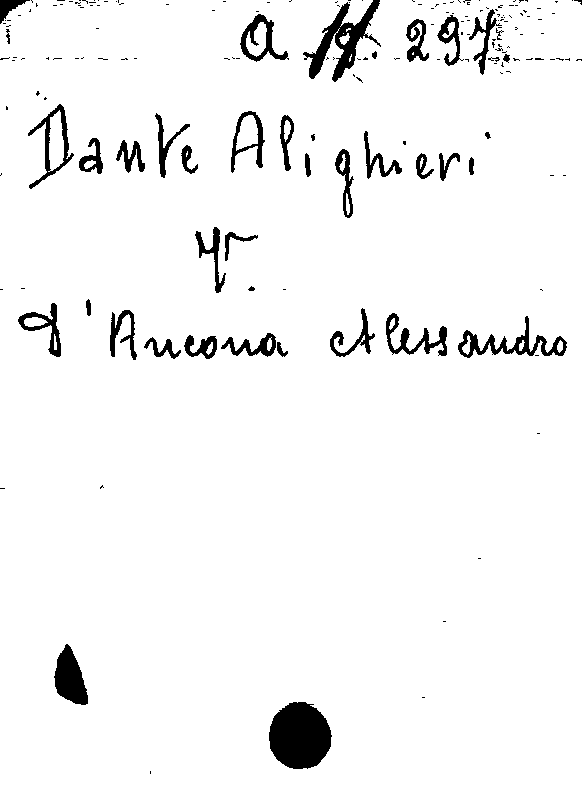 a 297.
Dante Alighieri
V.
D'Ancona Alessandro